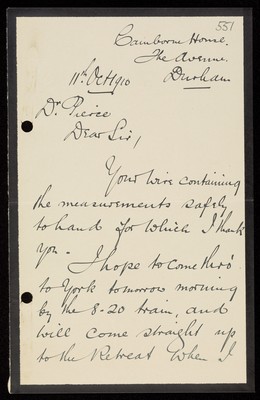 551
Camborne House.
The Avenue.
11th Oct 1910 Durham
Dr Pierce
Dear Sir,
Your wire containing
the measurements safely
to hand for which I thank
you - I hope to come thro'
to York tomorrow morning
by the 8-20 train, and
will come straight up
to the Retreat when I